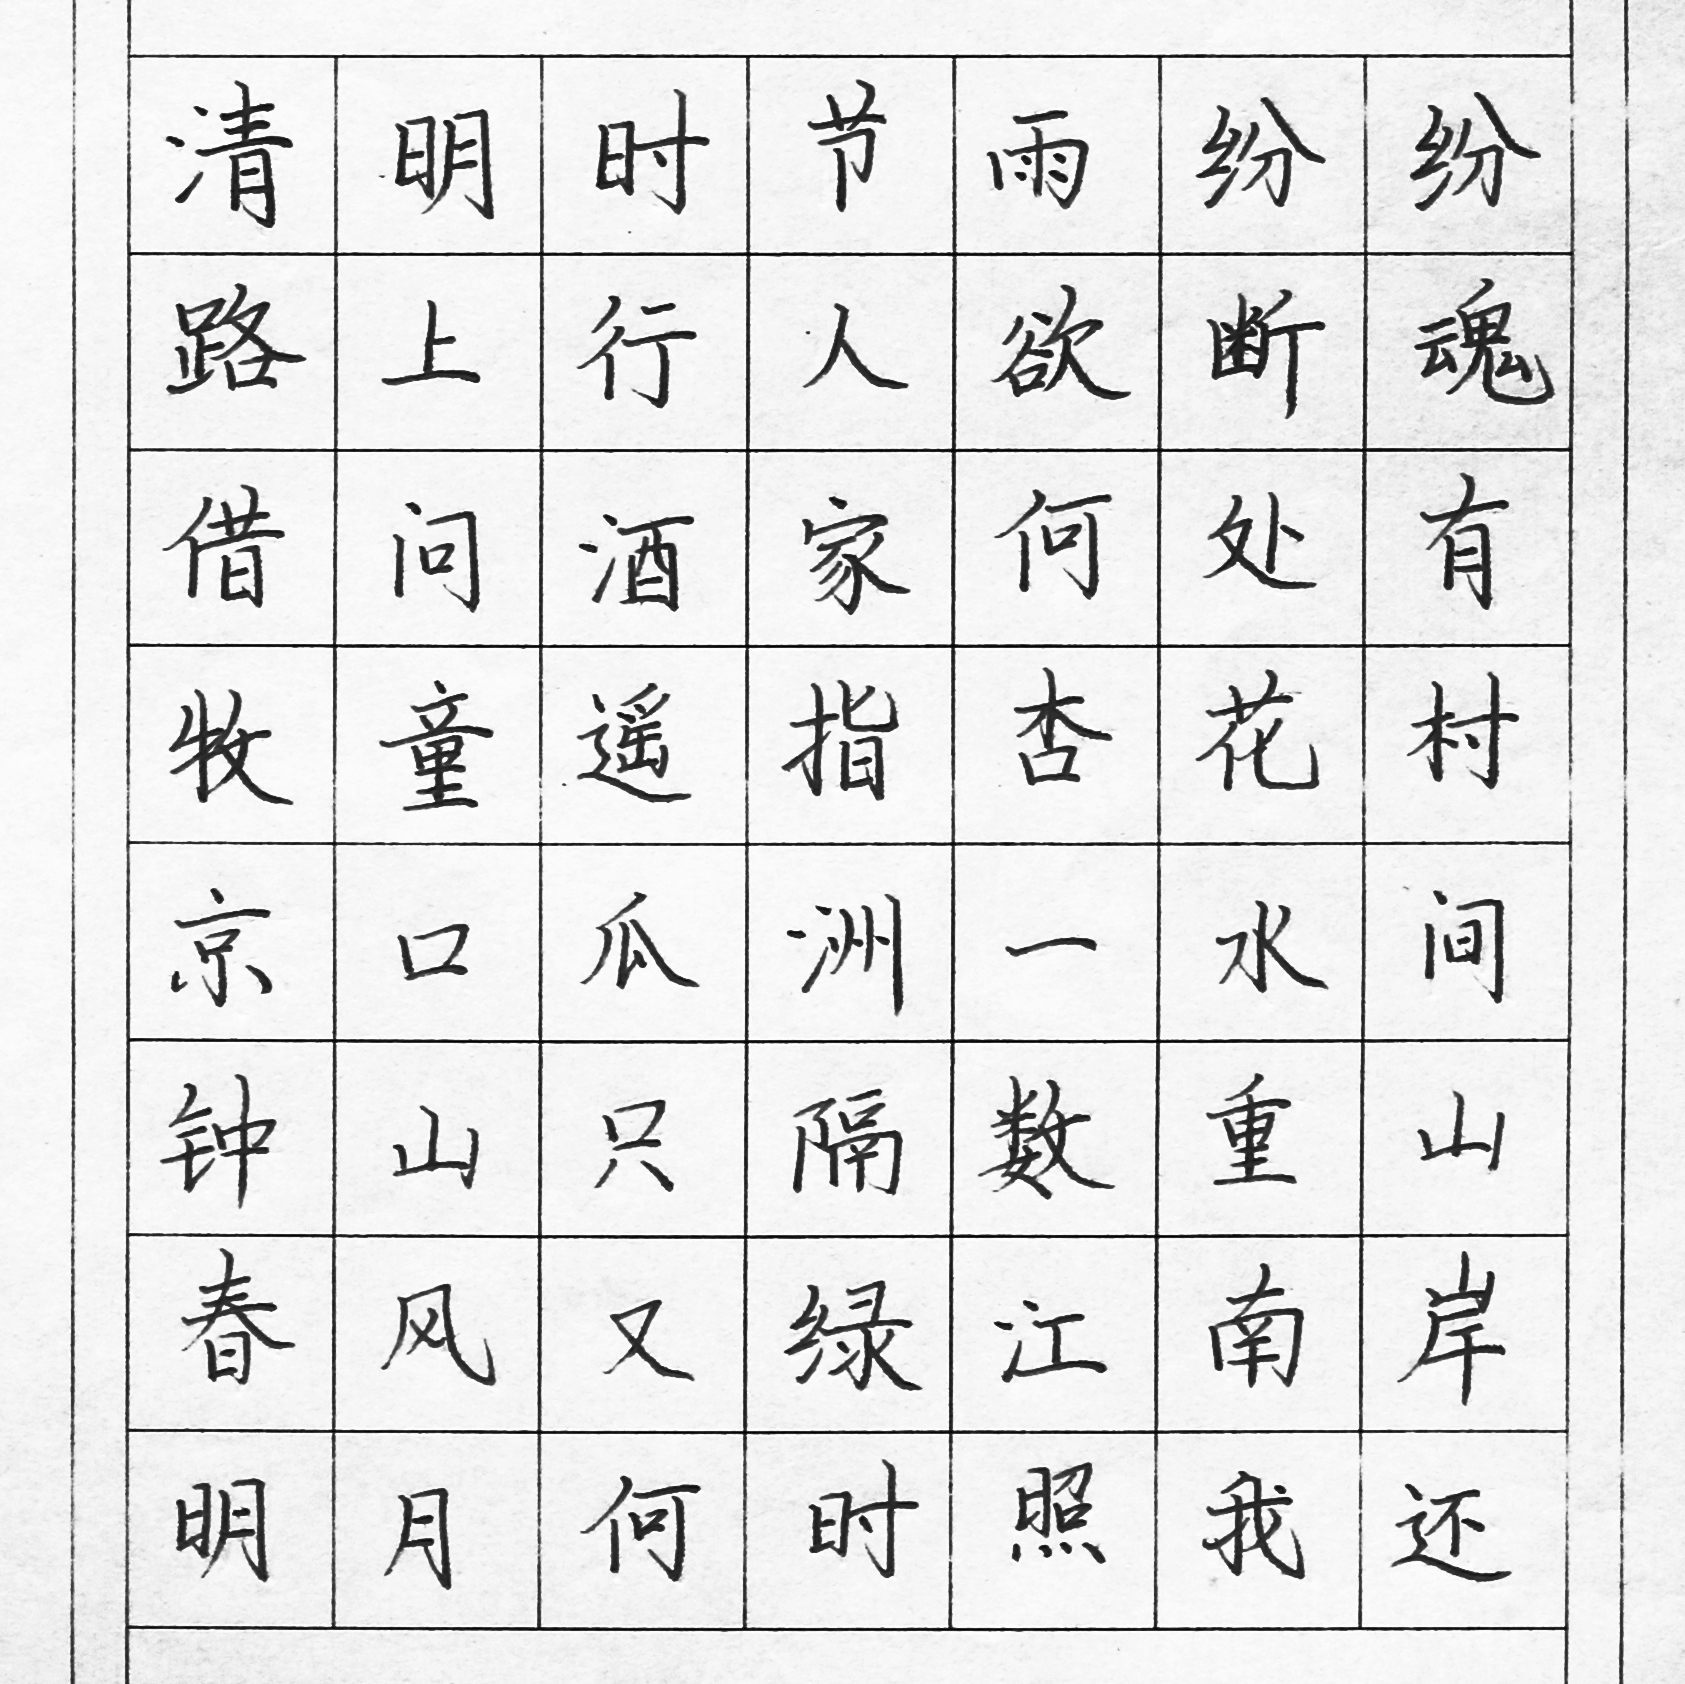 清明时节雨纷纷
路上行人欲断魂
借问酒家何处有
牧童遥指杏花村
京口瓜洲一水间
钟山只隔数重山
春风又绿江南岸
明月何时照我还